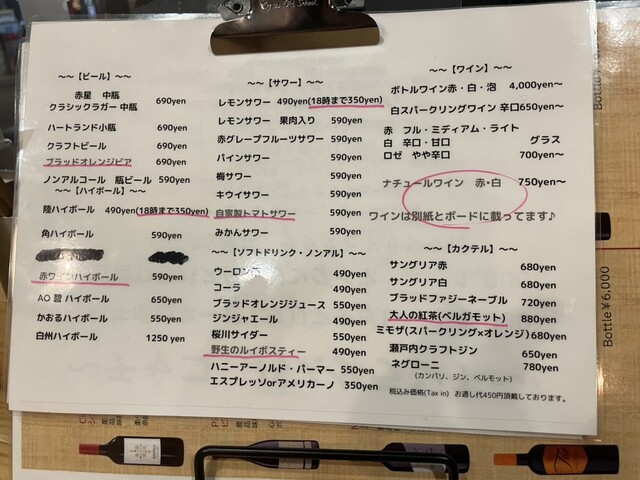 ～～【ビール】～～
赤星 中瓶
クラシックラガー 中瓶 690yen
ハートランド小瓶 690yen
クラフトビール 690yen
ブラッドオレンジビア 690yen
ノンアルコール 瓶ビール 590yen
～～【ハイボール】～～
陸ハイボール 490yen(18時まで350yen)
角ハイボール 590yen
赤ワインハイボール 590yen
AO 碧 ハイボール 650yen
かおるハイボール 550yen
白州ハイボール 1250 yen
～～【サワー】～～
レモンサワー 490yen(18時まで350yen)
レモンサワー 果肉入り 590yen
赤グレープフルーツサワー 590yen
パインサワー 590yen
梅サワー 590yen
キウイサワー 590yen
自家製トマトサワー 590yen
みかんサワー 590yen
～～【ソフトドリンク・ノンアル】～～
ウーロン茶 490yen
コーラ 490yen
ブラッドオレンジジュース 550yen
ジンジャエール 490yen
桜川サイダー 550yen
野生のルイボスティー 490yen
ハニーアーノルド・パーマー 550yen
エスプレッソorアメリカーノ 350yen
～～【ワイン】～～
ボトルワイン赤・白・泡 4,000yen～
白スパークリングワイン 辛口650yen～
赤 フル・ミディアム・ライト
白 辛口・甘口 グラス
ロゼ やや辛口 700yen～
ナチュールワイン 赤・白 750yen～
ワインは別紙とボードに載ってます♪
～～【カクテル】～～
サングリア赤 680yen
サングリア白 680yen
ブラッドファジーネーブル 720yen
大人の紅茶(ベルガモット) 880yen
ミモザ(スパークリング×オレンジ) 680yen
瀬戸内クラフトジン 650yen
ネグローニ 780yen
(カンパリ、ジン、ベルモット)
税込み価格(Tax in) お通し代450円頂戴しております。
Bottle￥6,000